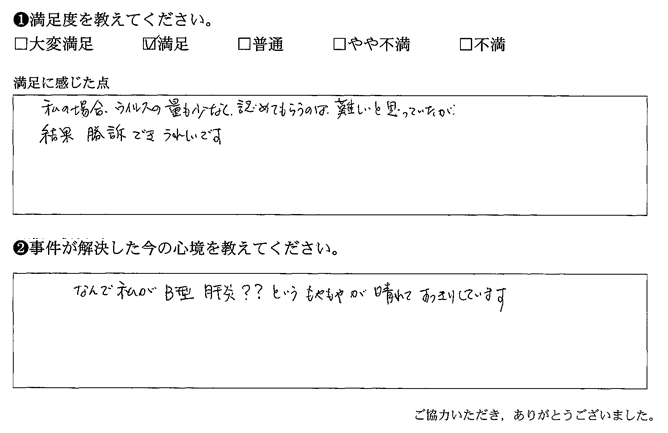 ❶満足度を教えてください。
□大変満足 ☑満足 □普通 □やや不満 □不満
満足に感じた点
私の場合、ウイルスの量も少なく、認めてもらうのは、難しいと思っていたが、
結果 勝訴でき うれしいです
❷事件が解決した今の心境を教えてください。
なんで私が B型 肝炎??という もやもやが 晴れて すっきりしています
ご協力いただき，ありがとうございました。